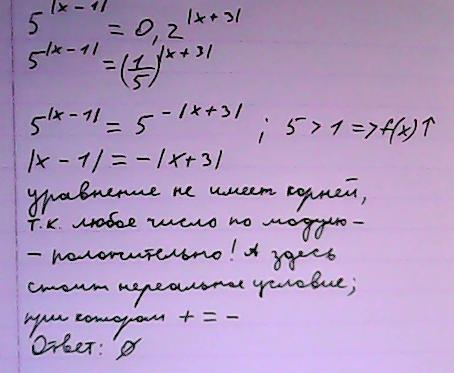 5^|x-1| = 0,2^|x+3|
5^|x-1| = (1/5)^|x+3|
5^|x-1| = 5^-|x+3| ; 5 > 1 => f(x)↑
|x-1| = -|x+3|
уравнение не имеет корней,
т.к. любое число по модулю -
- положительно! А здесь
стоит нереальное условие;
при котором + = -
Ответ: ∅